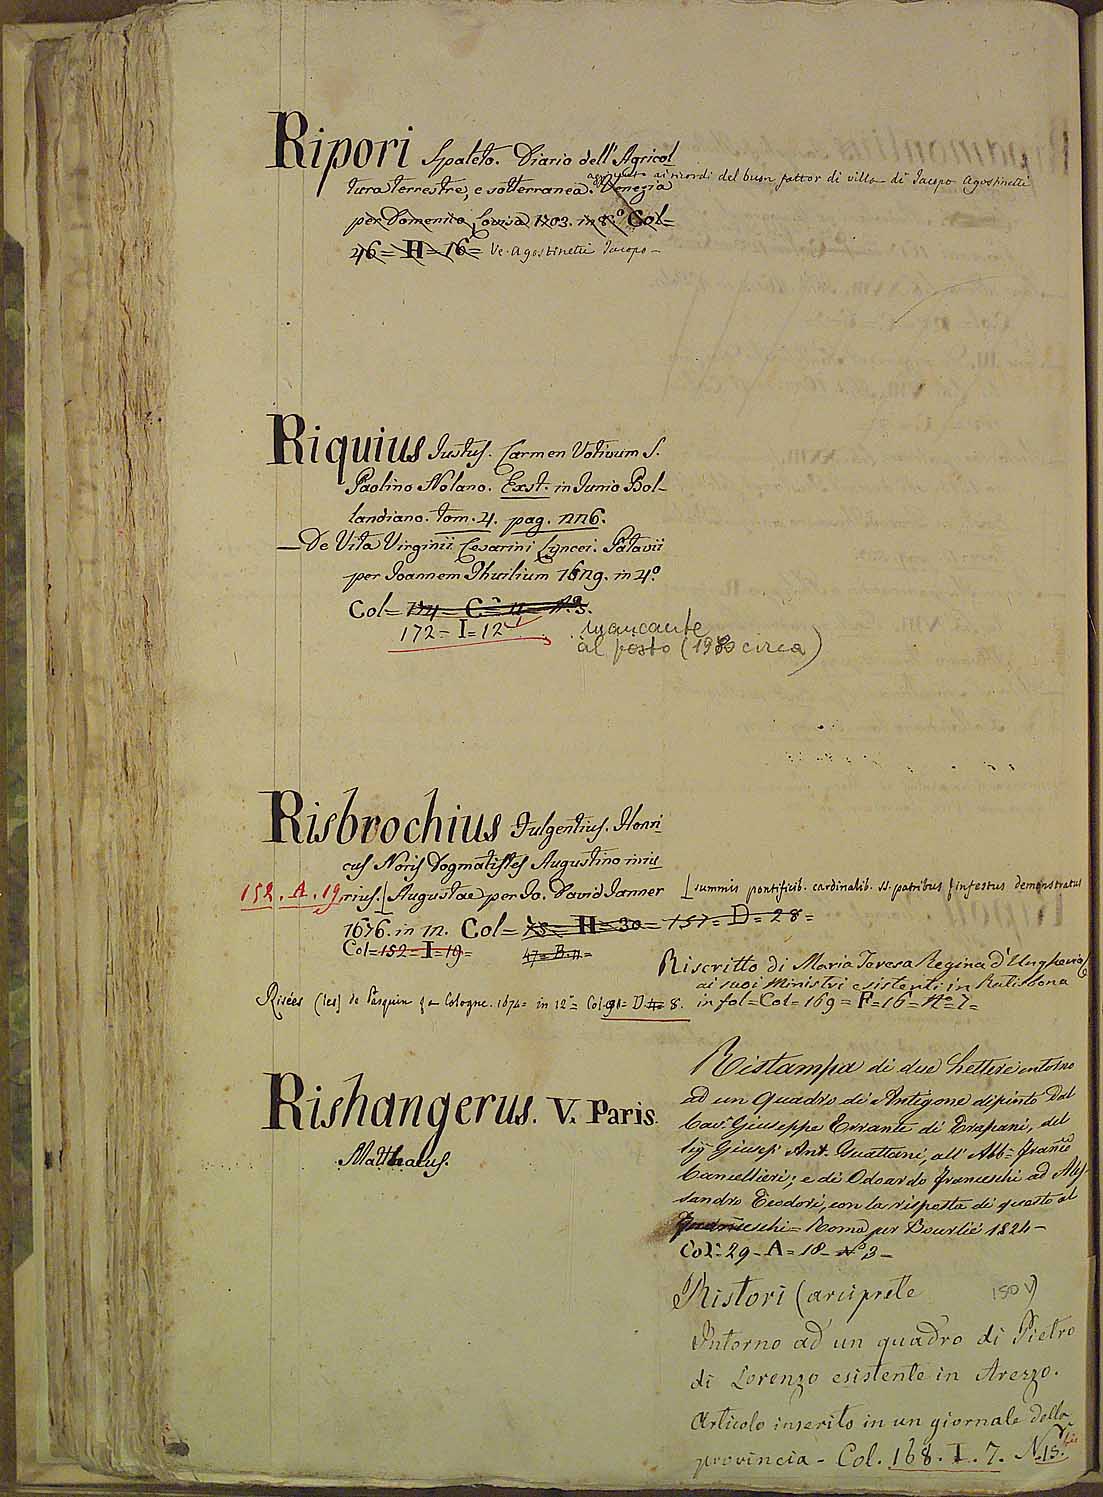 Ripori Spaleto. Diario dell'Agricol
tura terrestre, e sotterranea. Venezia
aggiunto ai ricordi del buon fattor di villa di Jacopo Agostinetti
per Domenico Lovisa 1703. in 8.° Col=
46= H= 16= Ve. Agostinetti Jacopo-
Riquius Justus. Carmen Votivum S.
Paolino Nolano. Exst. in Junio Bol-
landiano. tom. 4. pag. 226.
— De Vita Virginii Cesarini Lyncei. Patavii
per Joannem Thuilium 1629. in 4.°
Col=
172- I= 12
mancante
al posto (1980 circa)
Risbrochius Fulgentius. Henri
cus Noris Dogmatistes Augustino iniu
152. A. 19
rius. Augustae per Jo. David Janner
summis pontificib. cardinalib. ss. patribus infestus demonstratus
1676. in 12. Col= 78= H= 30= 157= D= 28=
Col= 152= I= 19=
47= B. 11=
Riscritto di Maria Teresa Regina d'Ungheria
ai suoi Ministri esistenti in Ratisbona
in fol= Col= 169= F= 16= N.° 7=
Risées (les) de Pasquin Cologne. 1674= in 12°= Col. 91= D 4= 8.
Rishangerus. V. Paris.
Matthaeus.
Ristampa di due Lettere intorno
ad un Quadro di Antigone dipinto dal
Cav. Giuseppe Errante di Trapani, del
Sig. Giusep. Ant. Guattani, all' Abb= Franc°
Cancellieri; e di Odoardo Franceschi ad Ales
sandro Teodori, con la risposta di questo al
Franceschi= Roma per Bourlié 1824-
Col= 29- A= 18- N.° 3-
Ristori (arciprete)
150 v
Intorno ad un quadro di Pietro
di Lorenzo esistente in Arezzo.
Articolo inserito in un giornale della
provincia- Col. 168. I. 7. N. 15. bis